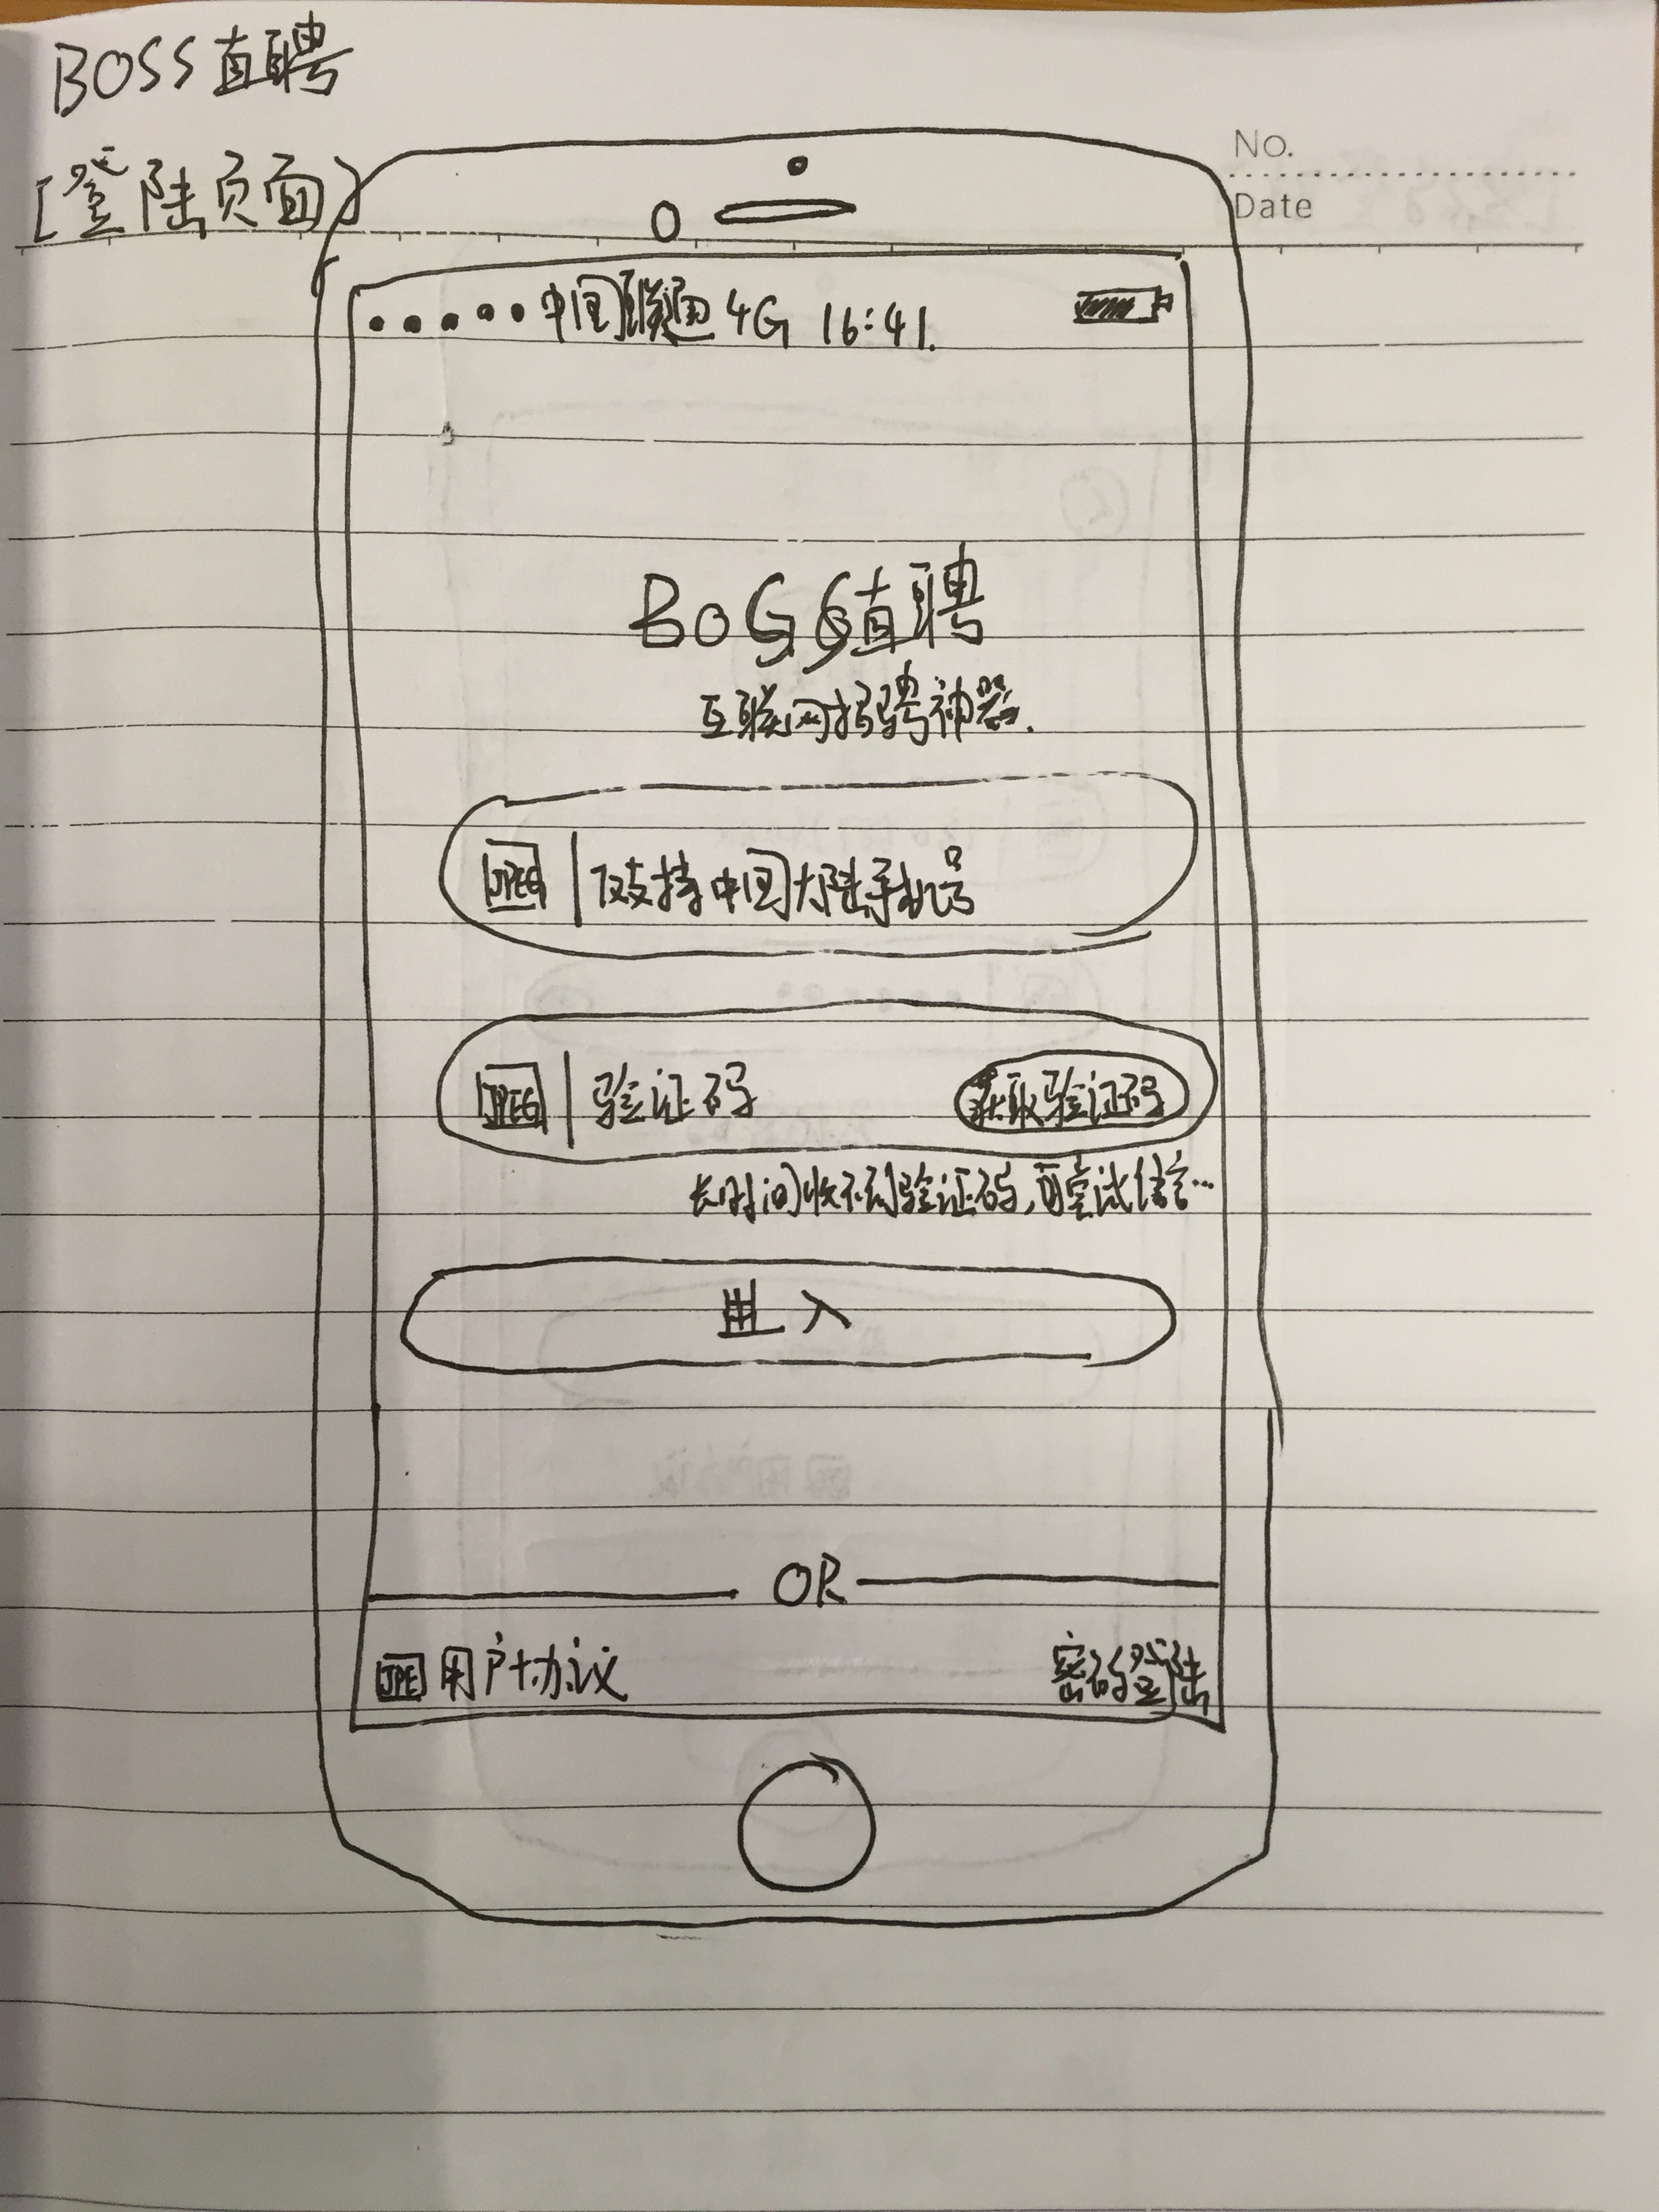 BOSS直聘
[登陆页面]
No.
Date
中国联通 4G 16:41.
BOSS直聘
互联网招聘神器.
JPEG 仅支持中国大陆手机号
JPEG 验证码 获取验证码
长时间收不到验证码,可尝试语音…
进入
OR
JPE 用户协议 密码登陆